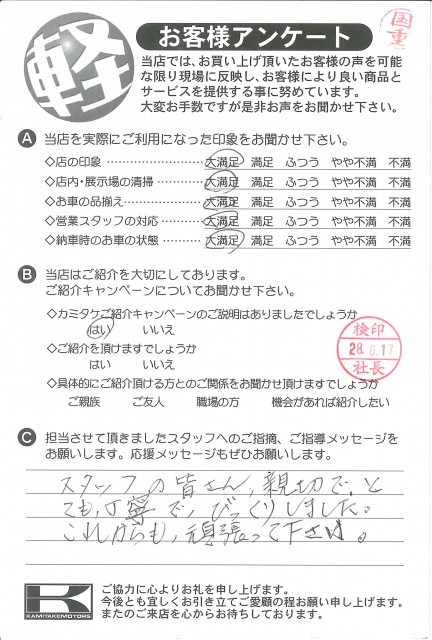 軽
お客様アンケート
国重
当店では、お買い上げ頂いたお客様の声を可能
な限り現場に反映し、お客様により良い商品と
サービスを提供する事に努めています。
大変お手数ですが是非お声をお聞かせ下さい。
A 当店を実際にご利用になった印象をお聞かせ下さい。
◇店の印象 ………………… 大満足 満足 ふつう やや不満 不満
◇店内・展示場の清掃 ……… 大満足 満足 ふつう やや不満 不満
◇お車の品揃え……………… 大満足 満足 ふつう やや不満 不満
◇営業スタッフの対応 ……… 大満足 満足 ふつう やや不満 不満
◇納車時のお車の状態 ……… 大満足 満足 ふつう やや不満 不満
B 当店はご紹介を大切にしております。
ご紹介キャンペーンについてお聞かせ下さい。
◇カミタケご紹介キャンペーンのご説明はありましたでしょうか
はい いいえ
◇ご紹介を頂けますでしょうか
はい いいえ
検印
28.6.17
社長
◇具体的にご紹介頂ける方とのご関係をお聞かせ頂けますでしょうか
ご親族 ご友人 職場の方 機会があれば紹介したい
C 担当させて頂きましたスタッフへのご指摘、ご指導メッセージを
お願いします。応援メッセージもぜひお願いします。
スタッフの皆さん、親切で、と
ても丁寧で、びっくりしました。
これからも、頑張って下さい。
K
KAMITAKEMOTORS
ご協力に心よりお礼を申し上げます。
今後とも宜しくお引き立てご愛顧の程お願い申し上げます。
またのご来店を心からお待ちしております。